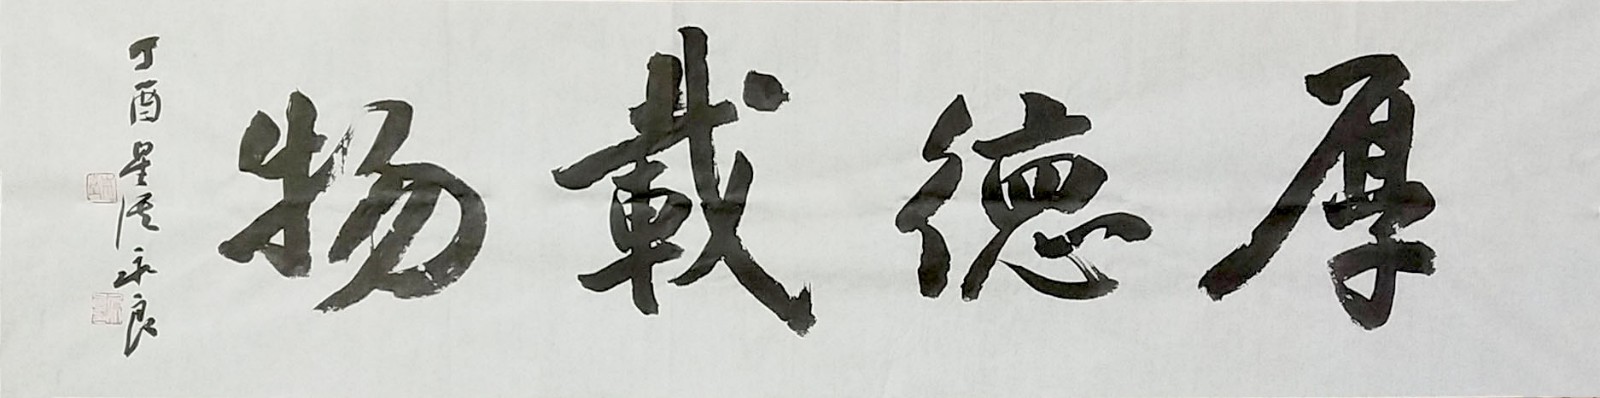 厚德載物
丁酉星汉永良